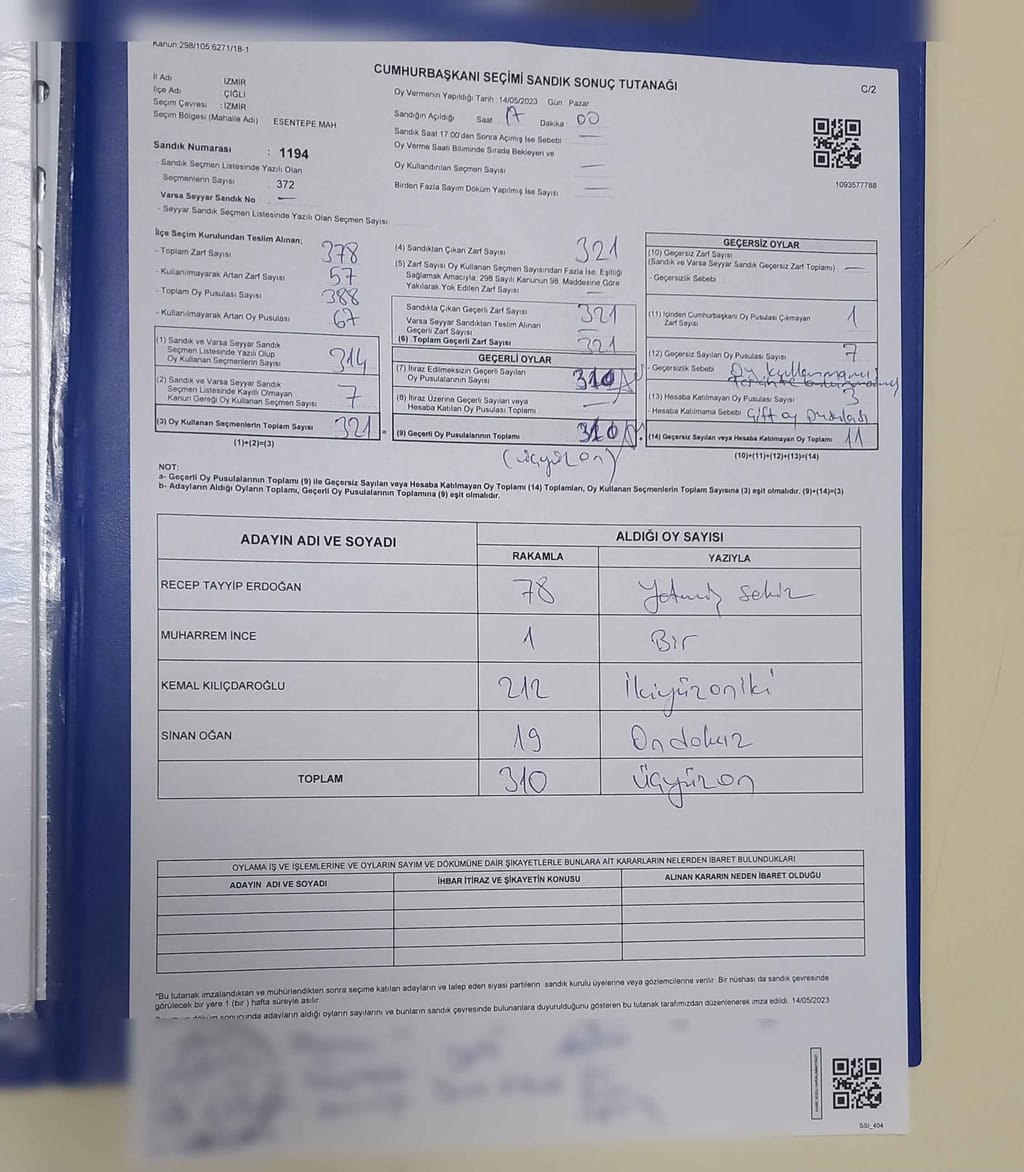 Kanun:298/105 6271/18-1
CUMHURBAŞKANI SEÇİMİ SANDIK SONUÇ TUTANAĞI
C/2
İl Adı İZMİR
İlçe Adı ÇİĞLİ
Seçim Çevresi : İZMİR
Seçim Bölgesi (Mahalle Adı) ESENTEPE MAH
Sandık Numarası : 1194
- Sandık Seçmen Listesinde Yazılı Olan
Seçmenlerin Sayısı : 372
Varsa Seyyar Sandık No : —
- Seyyar Sandık Seçmen Listesinde Yazılı Olan Seçmen Sayısı
Oy Vermenin Yapıldığı Tarih : 14/05/2023 Gün Pazar
Sandığın Açıldığı Saat 17 Dakika 00
Sandık Saat 17.00'den Sonra Açımış İse Sebebi —
Oy Verme Saati Bitiminde Sırada Bekleyen ve
Oy Kullandırılan Seçmen Sayısı —
Birden Fazla Sayım Döküm Yapılmış İse Sayısı —
1093577788
İlçe Seçim Kurulundan Teslim Alınan;
- Toplam Zarf Sayısı 378
- Kullanılmayarak Artan Zarf Sayısı 57
- Toplam Oy Pusulası Sayısı 388
- Kullanılmayarak Artan Oy Pusulası 67
(1) Sandık ve Varsa Seyyar Sandık
Seçmen Listesinde Yazılı Olup
Oy Kullanan Seçmenlerin Sayısı 314
(2) Sandık ve Varsa Seyyar Sandık
Seçmen Listesinde Kayıtlı Olmayan
Kanun Gereği Oy Kullanan Seçmen Sayısı 7
(3) Oy Kullanan Seçmenlerin Toplam Sayısı 321 =
(1)+(2)=(3)
(4) Sandıktan Çıkan Zarf Sayısı 321
(5) Zarf Sayısı Oy Kullanan Seçmen Sayısından Fazla İse, Eşitliği
Sağlamak Amacıyla, 298 Sayılı Kanunun 98. Maddesine Göre
Yakılarak Yok Edilen Zarf Sayısı —
Sandıkta Çıkan Geçerli Zarf Sayısı 321
Varsa Seyyar Sandıktan Teslim Alınan
Geçerli Zarf Sayısı —
(6) Toplam Geçerli Zarf Sayısı 321
GEÇERLİ OYLAR
(7) İtiraz Edilmeksizin Geçerli Sayılan
Oy Pusulalarının Sayısı 310
(8) İtiraz Üzerine Geçerli Sayılan veya
Hesaba Katılan Oy Pusulası Toplamı —
(9) Geçerli Oy Pusulalarının Toplamı 310
(üçyüzon)
GEÇERSİZ OYLAR
(10) Geçersiz Zarf Sayısı
(Sandık ve Varsa Seyyar Sandık Geçersiz Zarf Toplamı) —
- Geçersizlik Sebebi
(11) İçinden Cumhurbaşkanı Oy Pusulası Çıkmayan
Zarf Sayısı 1
(12) Geçersiz Sayılan Oy Pusulası Sayısı 7
- Geçersizlik Sebebi Oy kullanmamış
(13) Hesaba Katılmayan Oy Pusulası Sayısı 3
- Hesaba Katılmama Sebebi Çift oy pusulası
(14) Geçersiz Sayılan veya Hesaba Katılmayan Oy Toplamı 11
(10)+(11)+(12)+(13)=(14)
NOT:
a- Geçerli Oy Pusulalarının Toplamı (9) ile Geçersiz Sayılan veya Hesaba Katılmayan Oy Toplamı (14) Toplamları, Oy Kullanan Seçmenlerin Toplam Sayısına (3) eşit olmalıdır. (9)+(14)=(3)
b- Adayların Aldığı Oyların Toplamı, Geçerli Oy Pusulalarının Toplamına (9) eşit olmalıdır.
ADAYIN ADI VE SOYADI ALDIĞI OY SAYISI
RAKAMLA YAZIYLA
RECEP TAYYİP ERDOĞAN 78 Yetmiş sekiz
MUHARREM İNCE 1 Bir
KEMAL KILIÇDAROĞLU 212 İkiyüzoniki
SİNAN OĞAN 19 Ondokuz
TOPLAM 310 Üçyüzon
OYLAMA İŞ VE İŞLEMLERİNE VE OYLARIN SAYIM VE DÖKÜMÜNE DAİR ŞİKAYETLERLE BUNLARA AİT KARARLARIN NELERDEN İBARET BULUNDUKLARI
ADAYIN ADI VE SOYADI İHBAR İTİRAZ VE ŞİKAYETİN KONUSU ALINAN KARARIN NEDEN İBARET OLDUĞU
*Bu tutanak imzalandıktan ve mühürlendikten sonra seçime katılan adayların ve talep eden siyasi partilerin sandık kurulu üyelerine veya gözlemcilerine verilir. Bir nüshası da sandık çevresinde
görülecek bir yere 1 (bir ) hafta süreyle asılır.
döküm sonucunda adayların aldığı oyların sayılarını ve bunların sandık çevresinde bulunanlara duyurulduğunu gösteren bu tutanak tarafımızdan düzenlenerek imza edildi. 14/05/2023
SSI_404